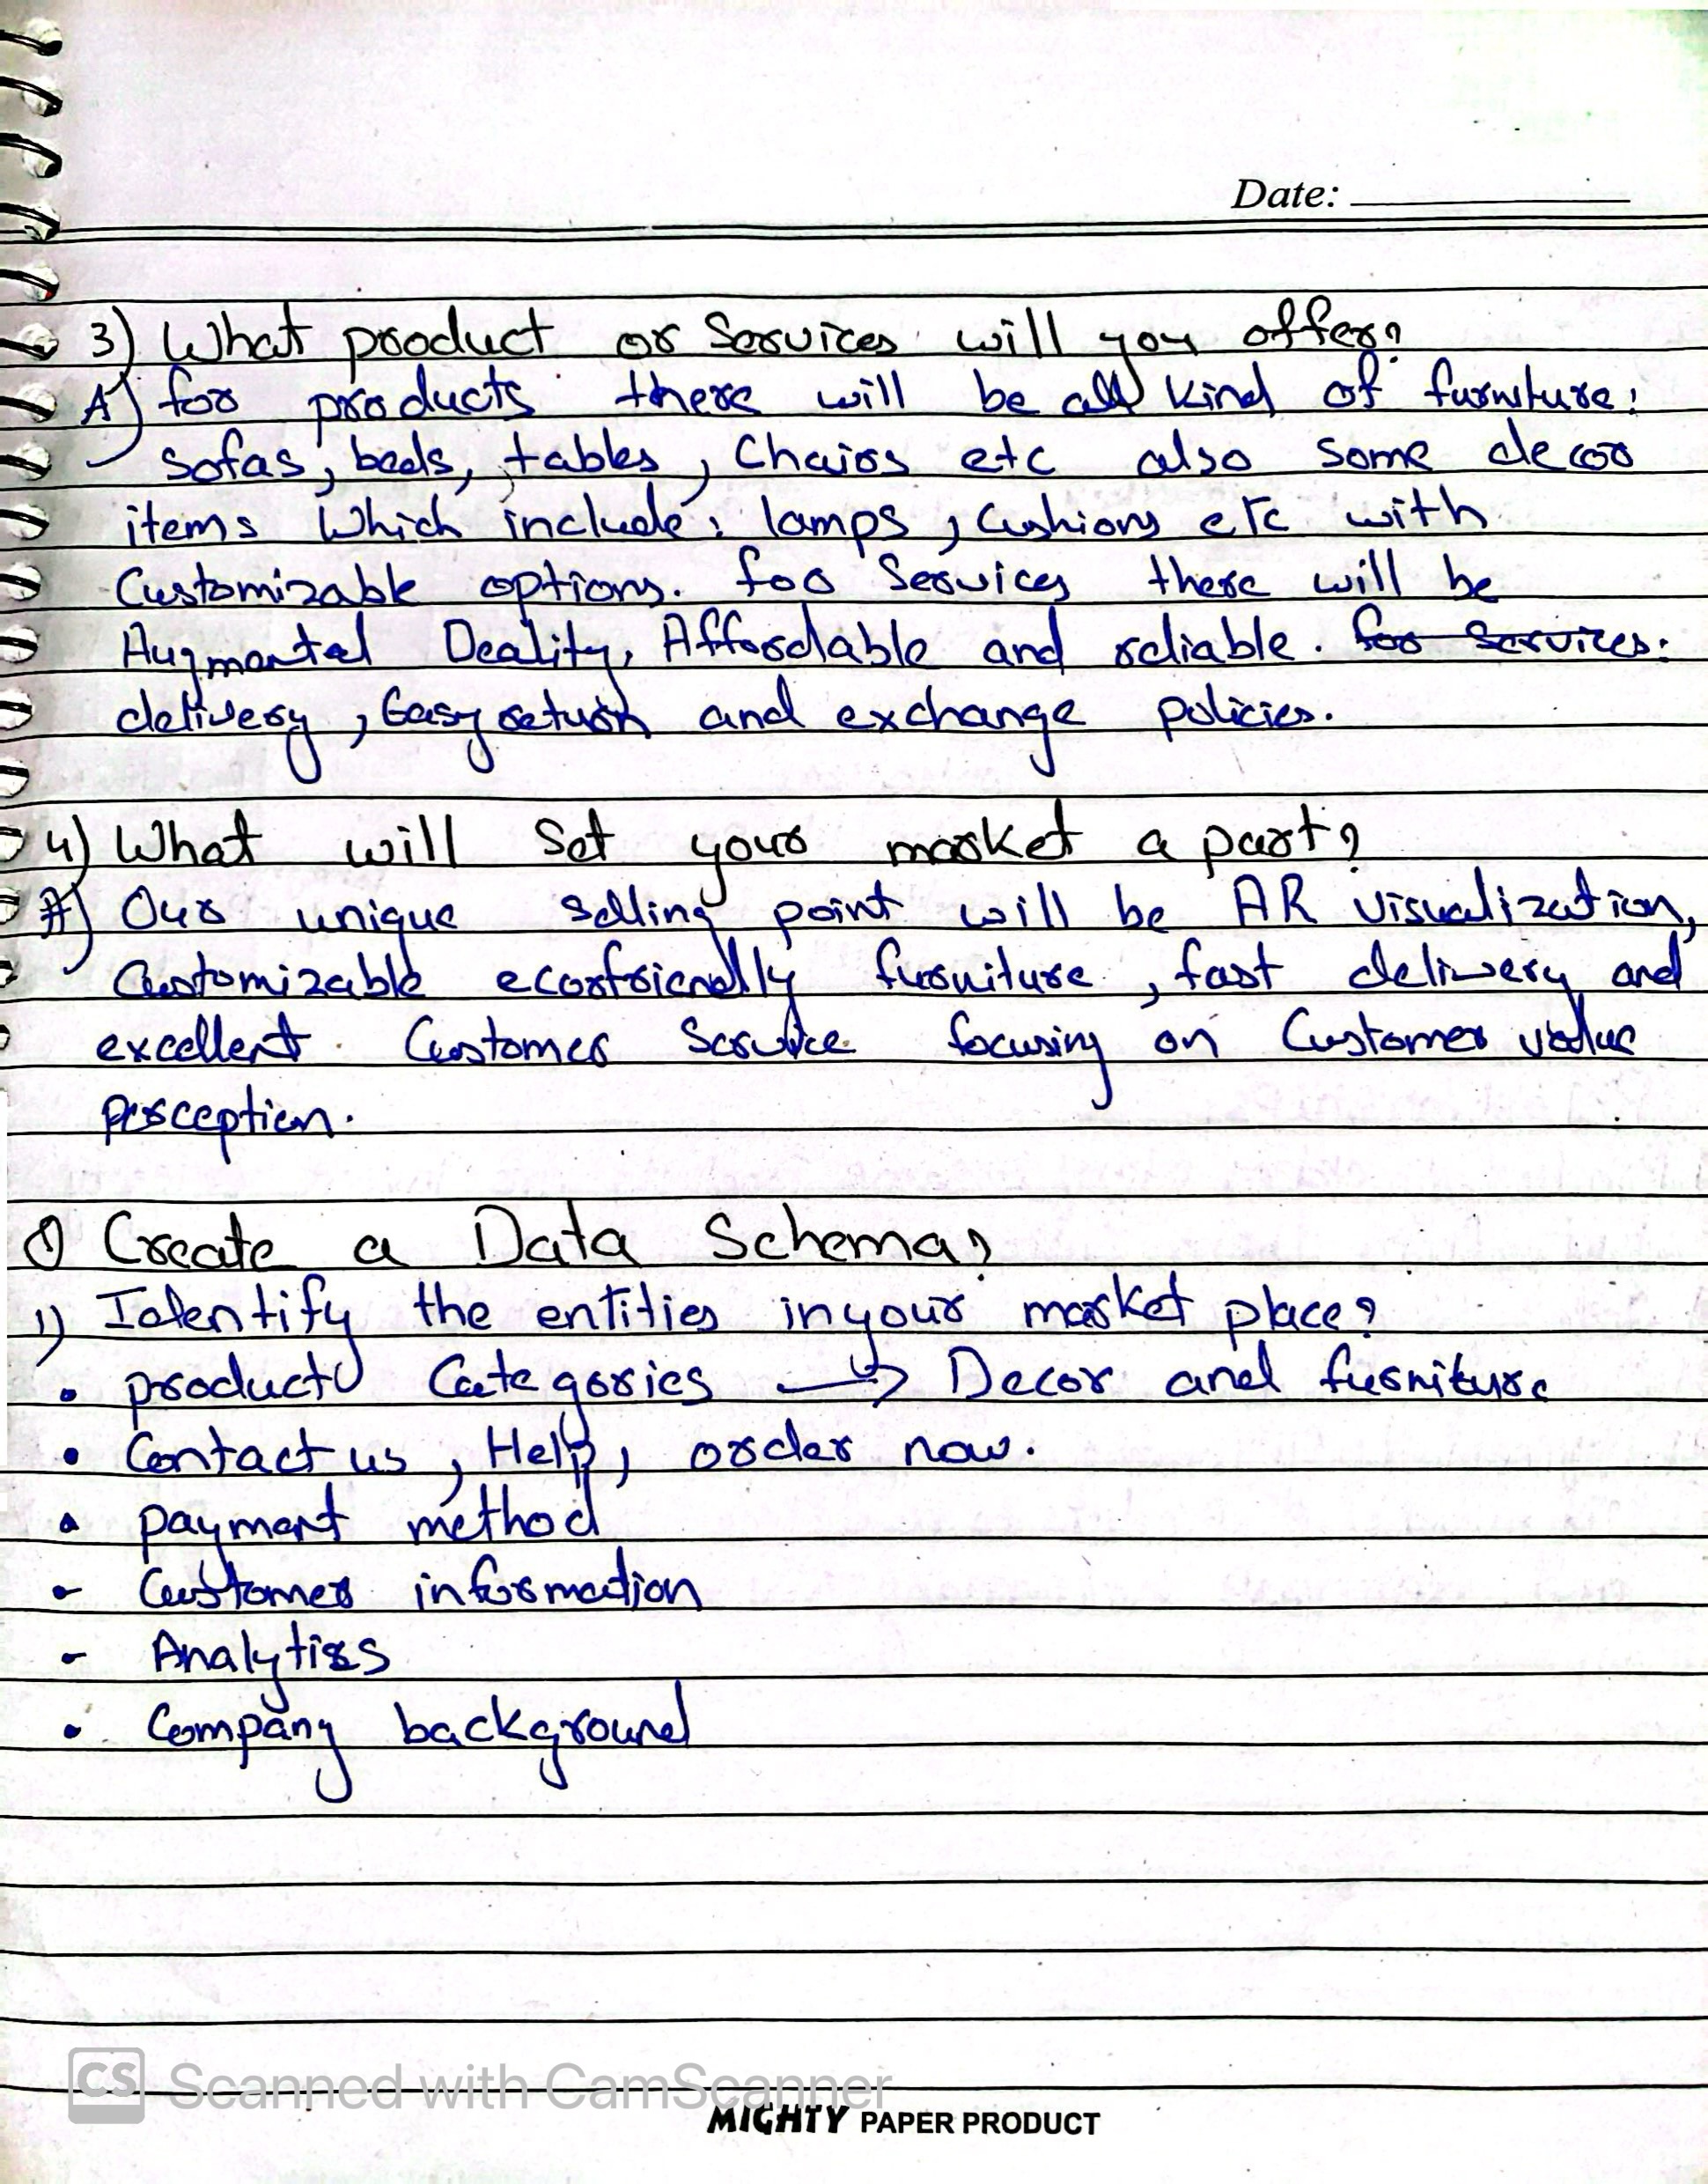 Date:
3) What product or Services will you offer?
A) for products there will be all kind of furniture:
Sofas, beds, tables, Chairs etc also some decor
items Which include: lamps, Cushions etc with
Customizable options. for Services there will be
Augmented Deality, Affordable and reliable. for services:
delivery, Easy return and exchange policies.
4) What will Set your market a part?
A) Our unique selling point will be AR visualization,
Customizable ecofriendly furniture, fast delivery and
excellent Customer Service focusing on Customer value
perception.
Create a Data Schema?
1) Identify the entities in your market place?
• product Categories → Decor and furniture
• Contact us, Help, order now.
• payment method
- Customer information
- Analytics
• Company background
CS Scanned with CamScanner
MIGHTY PAPER PRODUCT